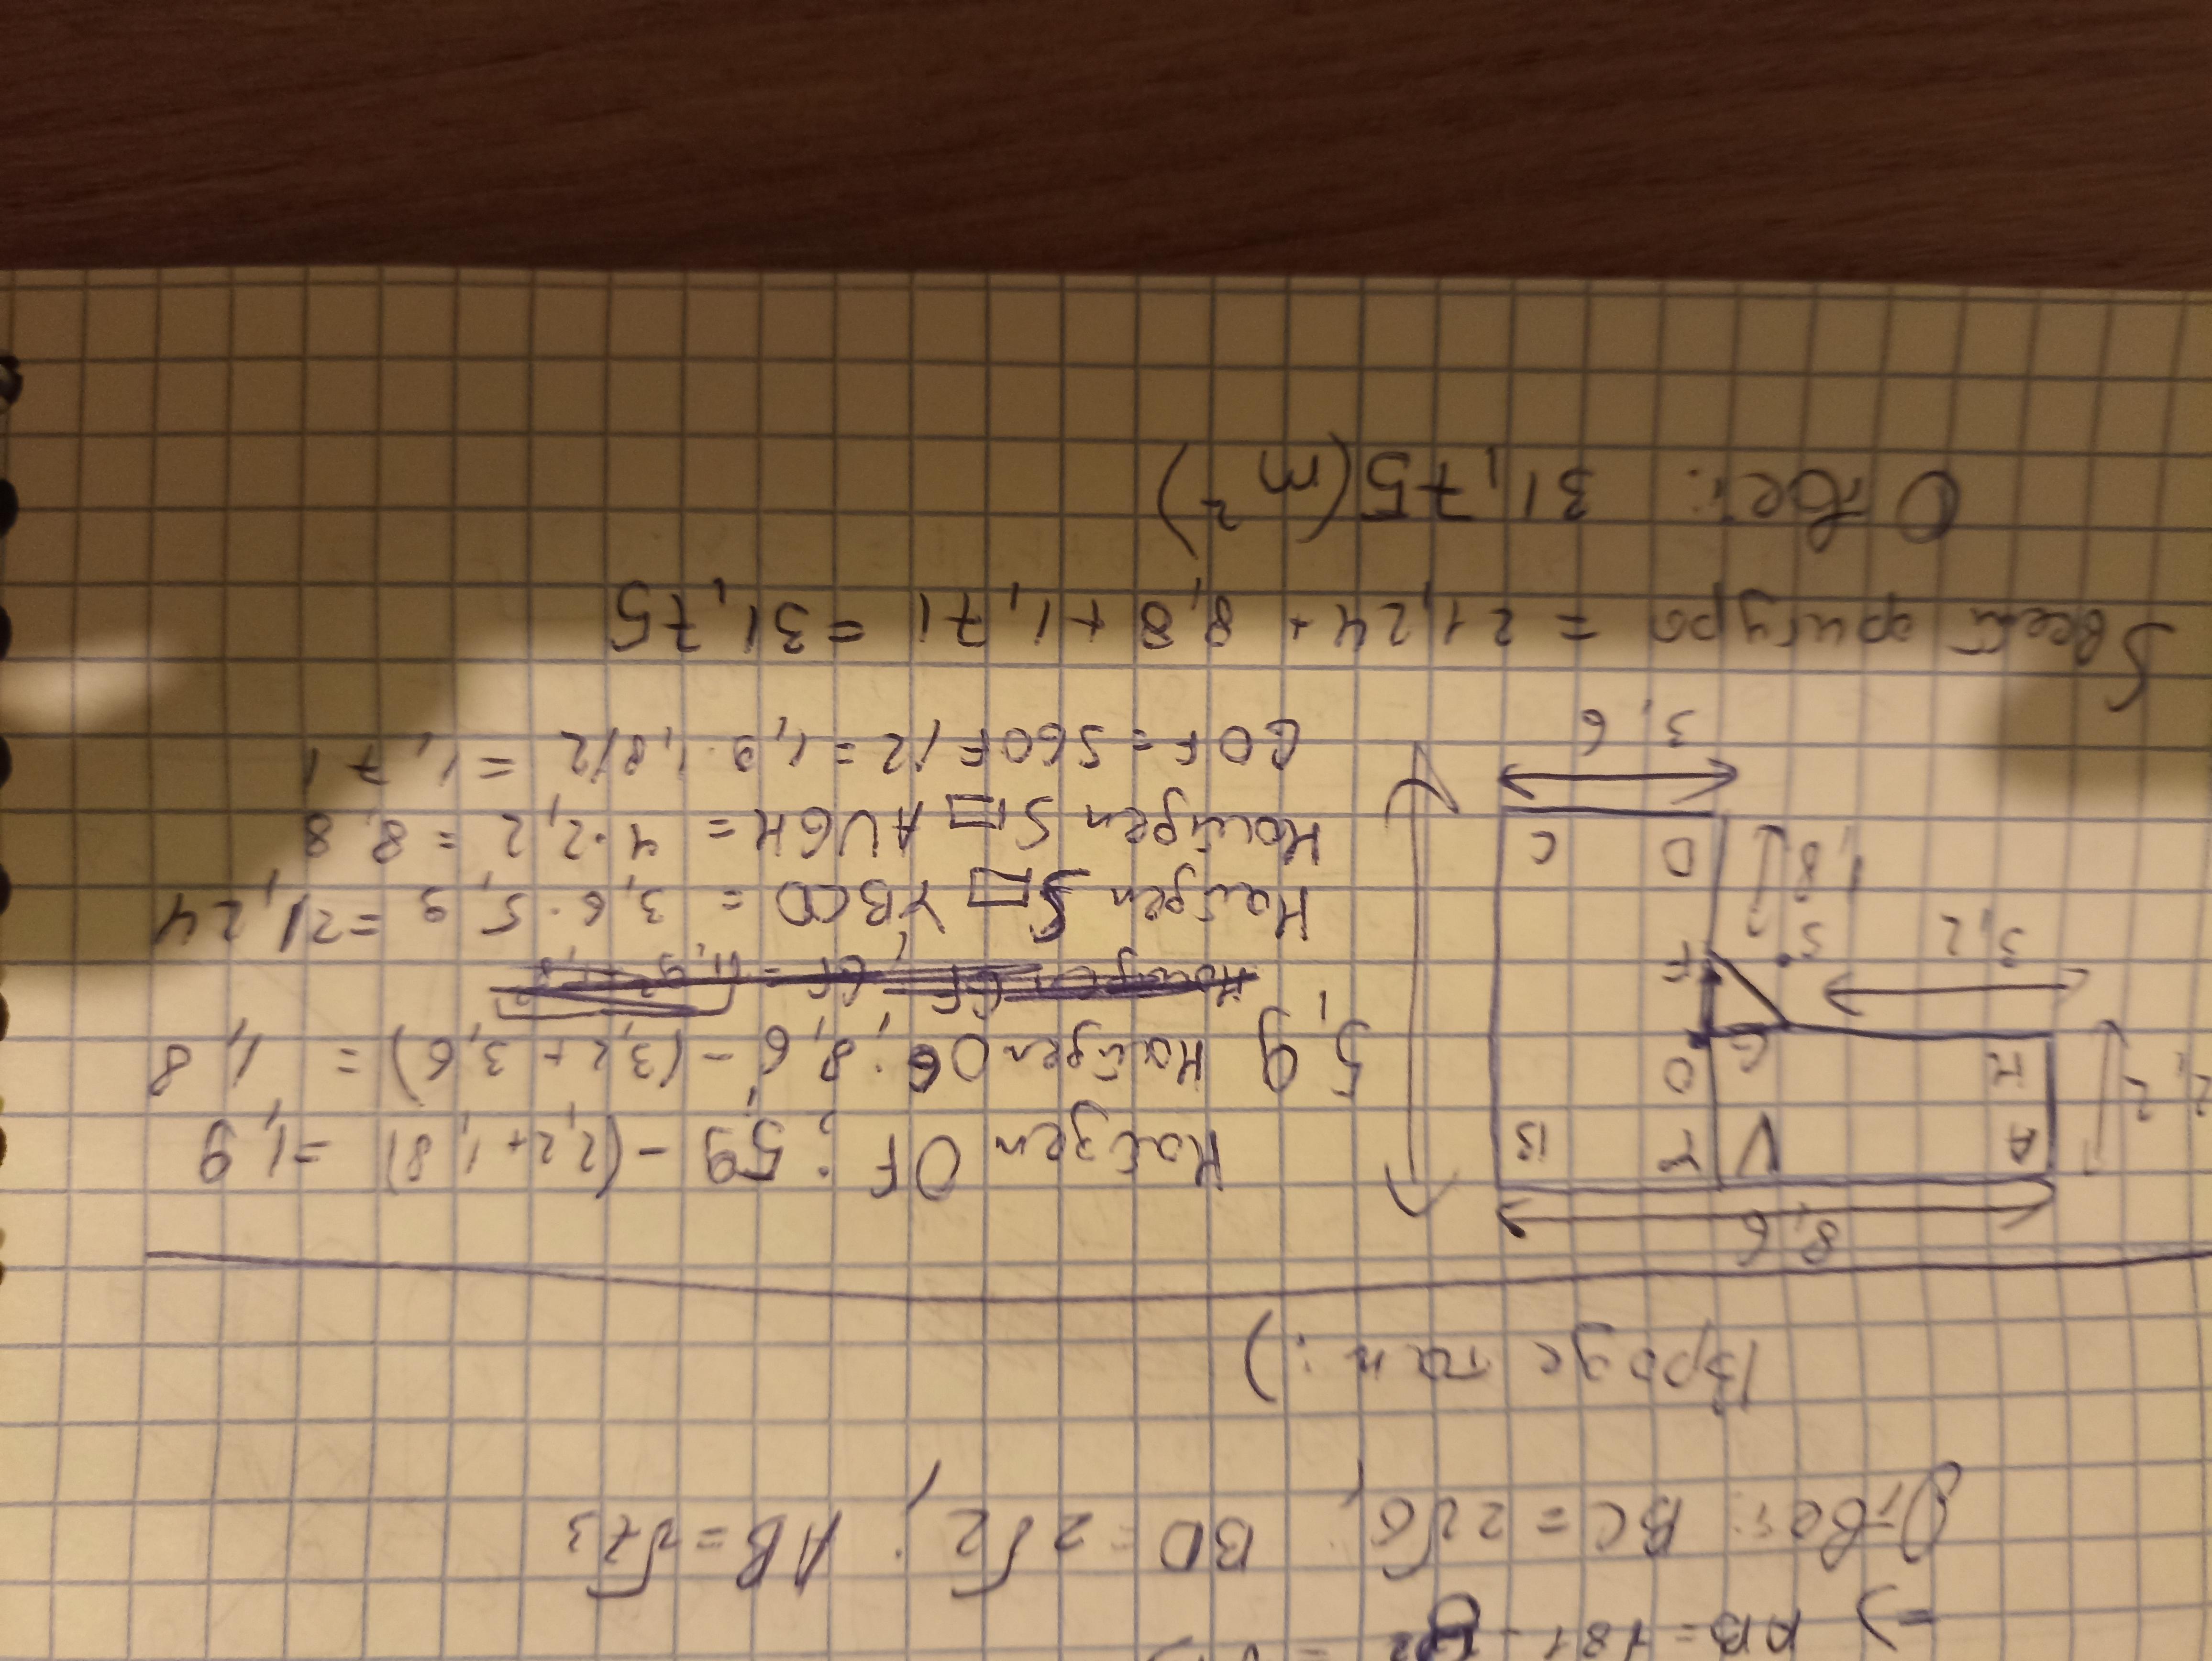 =) AB = √81 -
Ответ: BC = 2√6; BD = 2√2; AB = √73
Вроде так :)
8,6
A V Y B
2,2
H G O
3,2
5
F
1,8
D C
3,6
5,9
Найдем OF: 5,9 - (2,2 + 1,8) = 1,9
Найдем OG: 8,6 - (3,2 + 3,6) = 1,8
Найдем S□ YBCD = 3,6 · 5,9 = 21,24
Найдем S□ AVGH = 4 · 2,2 = 8,8
GOF = SGOF/2 = 1,9 · 1,8/2 = 1,71
Sвсей фигуры = 21,24 + 8,8 + 1,71 = 31,75
Ответ: 31,75 (m²)